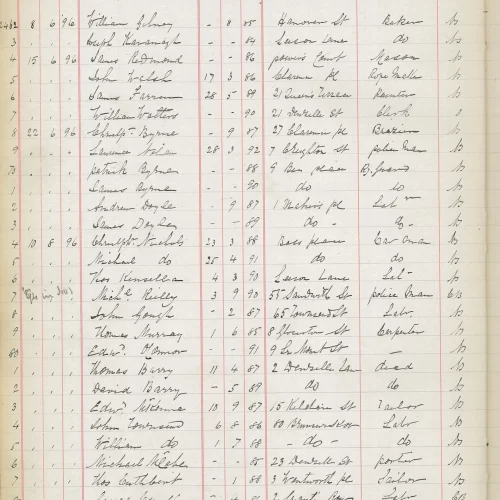 2482 8 6 96 William Gilney - 8 85 Hanover St Baker No
3 . . . Joseph Kavanagh - - 84 Lane do No
4 15 6 96 James Redmond - - 86 powers Court Mason No
5 . . . John Walsh 17 3 86 Clarence pl Rope Maker No
6 . . . James Farran 28 5 89 21 Queens Terrace Painter No
7 . . . William Watters - - 90 21 Denzille St Clerk No
8 22 6 96 Christr Byrne - 9 87 27 Clarence pl Brazier No
9 . . . Laurence Nolan 28 3 92 7 Creighton St police man No
70 . . . patrick Byrne - - 88 9 place No
1 . . . James Byrne - - 90 do do No
2 . . . Andrew Doyle - 9 87 1 pl Labr No
3 . . . James - - 89 do - do - No
4 10 8 96 Christr Nichols 23 3 88 Bass place Car man No
5 . . . Michael do 25 4 91 do do No
6 . . . Thos Kinsella 4 3 90 Lane Labr No
7 . . . Michl Reilly 3 9 90 55 Sandwith St police man
8 . . . John Gough - 2 87 65 Townsend St Labr No
9 . . . Thomas Murray 1 6 85 8 Gloucester St Carpenter No
80 . . . Edwd O'Connor - - 91 9 Gr Mount St - No
1 . . . Thomas Barry 11 4 87 2 Denzille Lane dead No
2 . . . David Barry - 5 89 do do No
3 . . . Edwd McKenna 10 9 87 15 Kildare St Tailor No
4 . . . John Townsend 6 8 86 80 Labr No
5 . . . William do 1 7 88 - do - do No
6 . . . Michael - - 85 23 Denzille St porter No
7 . . . Thos Cuthbert - 1 88 3 Wentworth pl Sailor No